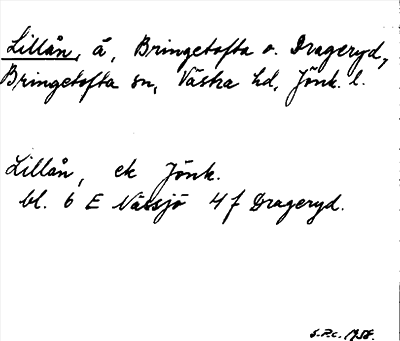 Lillån, å, Bringetofta o. Drageryd,
Bringetofta sn, Västra hd, Jönk. l.
Lillån, ek Jönk.
bl. 6 E Nässjö 4 f Drageryd.